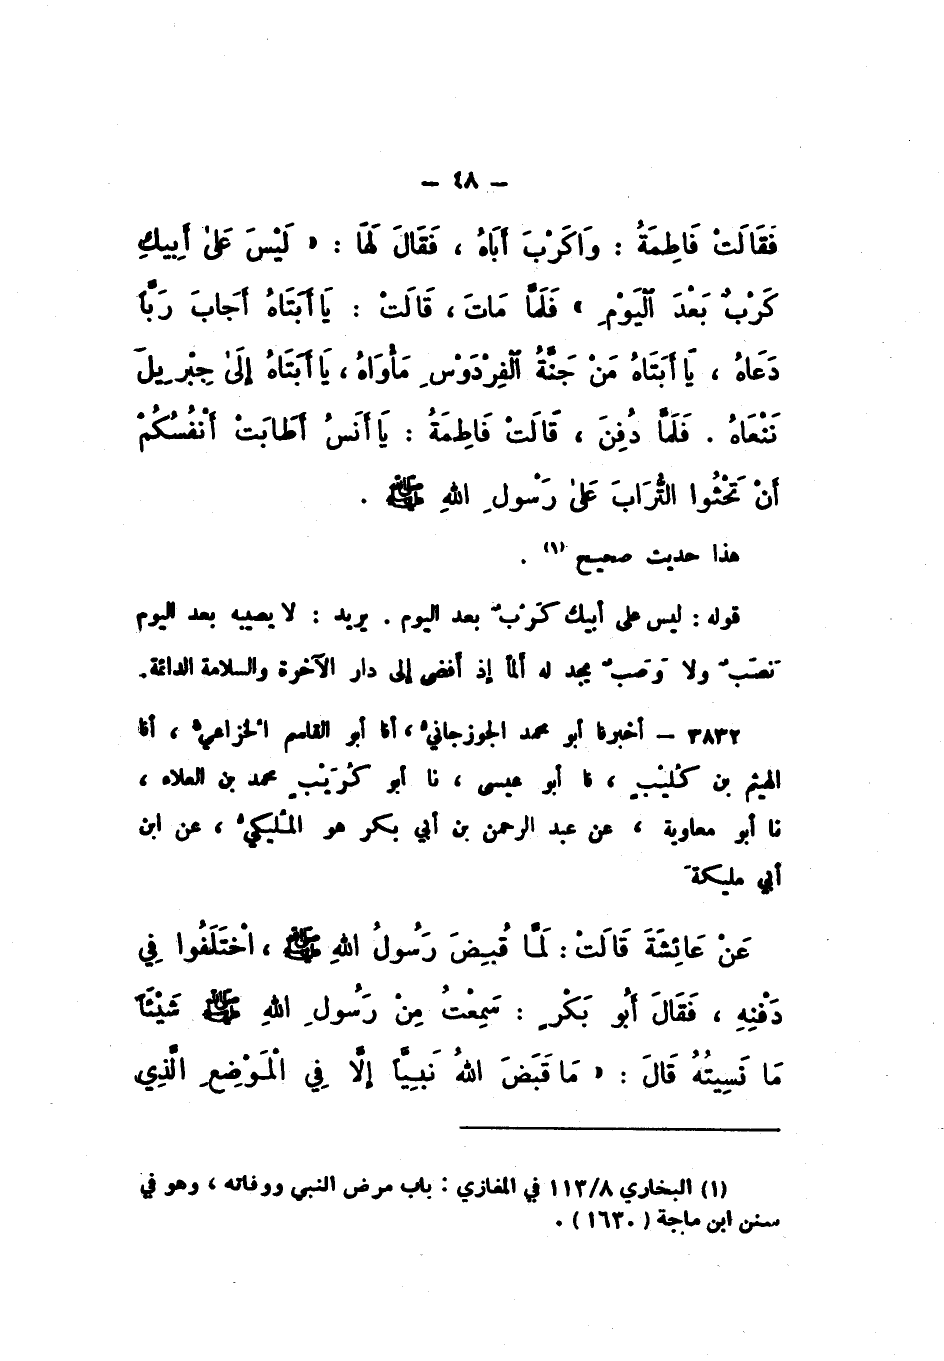 – ٤٨ –
فَقَالَتْ فَاطِمَةُ : وَاكَرْبَ أَبَاهُ ، فَقَالَ لَهَا : « لَيْسَ عَلىٰ أَبِيكِ
كَرْبٌ بَعْدَ ٱلْيَوْمِ » فَلَمَّا مَاتَ ، قَالَتْ : يَا أَبَتَاهُ أَجَابَ رَبَّاً
دَعَاهُ ، يَا أَبَتَاهُ مَنْ جَنَّةُ ٱلْفِرْدَوْسِ مَأْوَاهُ ، يَا أَبَتَاهُ إِلىٰ جِبْرِيلَ
نَنْعَاهُ . فَلَمَّا دُفِنَ ، قَالَتْ فَاطِمَةُ : يَا أَنَسُ أَطَابَتْ أَنْفُسُكُمْ
أَنْ تَحْثُوا التُّرَابَ عَلىٰ رَسُولِ اللهِ ﷺ .
هذا حديث صحيح (١) .
قوله : ليس على أبيك كَرْبٌ بعد اليوم . يريد : لا يصيبه بعد اليوم
نَصَبٌ ولا وَصَبٌ يجد له ألماً إذ أفضى إلى دار الآخرة والسلامة الدائمة.
٣٨٣٢ – أخبرنا أبو محمد الجوزجانيُّ ، أنا أبو القاسم الخزاعيُّ ، أنا
الهيثم بن كُلَيْبٍ ، نا أبو عيسى ، نا أبو كُرَيْبٍ محمد بن العلاء ،
نا أبو معاوية ، عن عبد الرحمن بن أبي بكر هو المُلَيكيُّ ، عن ابن
أبي مليكةَ
عَنْ عَائِشَةَ قَالَتْ : لَمَّا قُبِضَ رَسُولُ اللهِ ﷺ ، اخْتَلَفُوا فِي
دَفْنِهِ ، فَقَالَ أَبُو بَكْرٍ : سَمِعْتُ مِنْ رَسُولِ اللهِ ﷺ شَيْئَاً
مَا نَسِيتُهُ قَالَ : « مَا قَبَضَ اللهُ نَبِيَّاً إِلَّا فِي الْمَوْضِعِ الَّذِي
(١) البخاري ١١٣/٨ في المغازي : باب مرض النبي ووفاته ، وهو في
سنن ابن ماجة ( ١٦٣٠ ) .